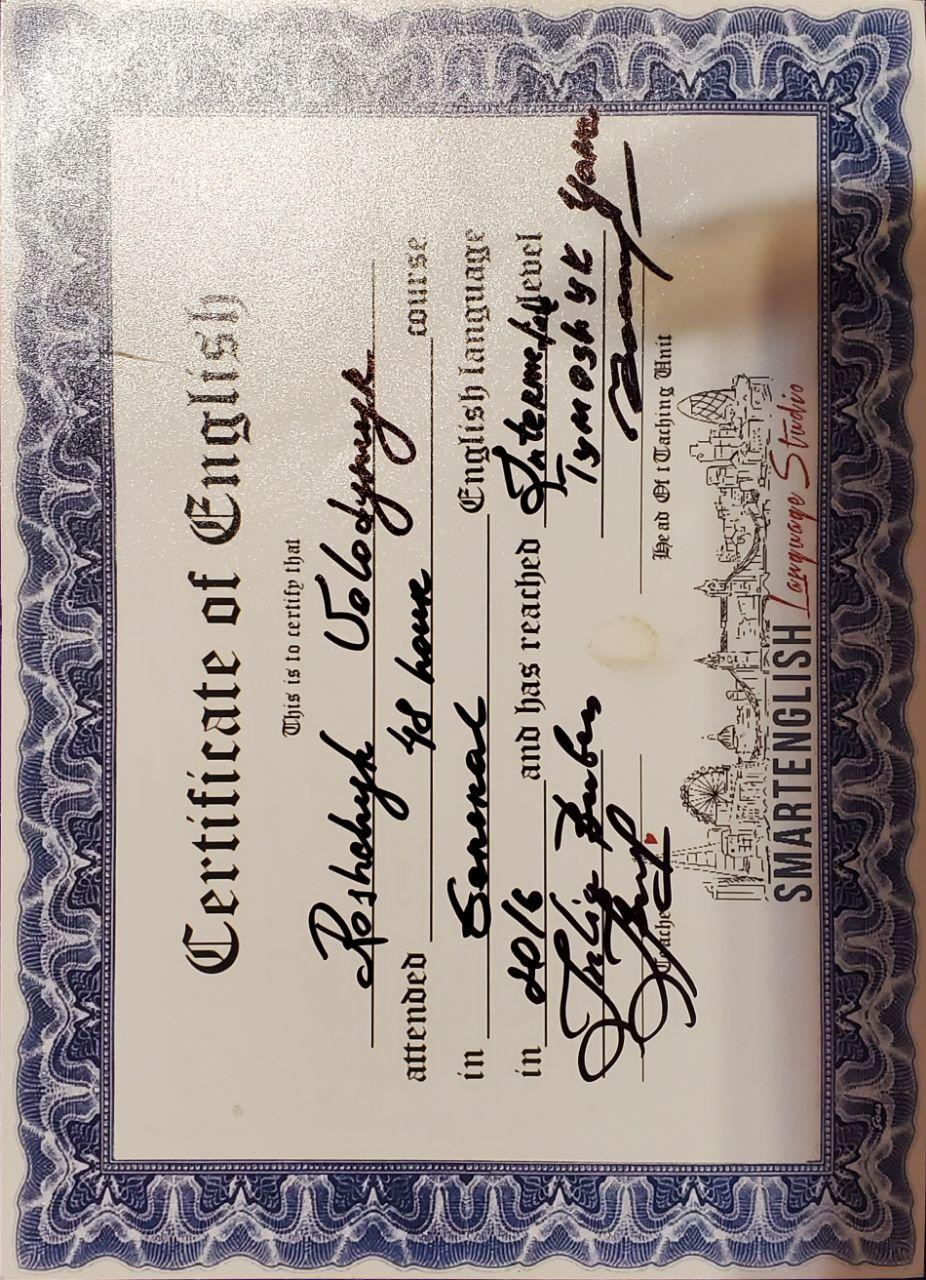 Certificate of English
This is to certify that
Roshchyk Volodymyr
attended 48 hours course
in General English language
in 2016 and has reached Intermediate level
Julia Tymoshyk
Teacher Head Of t Taching Unit
SMARTENGLISH Language Studio